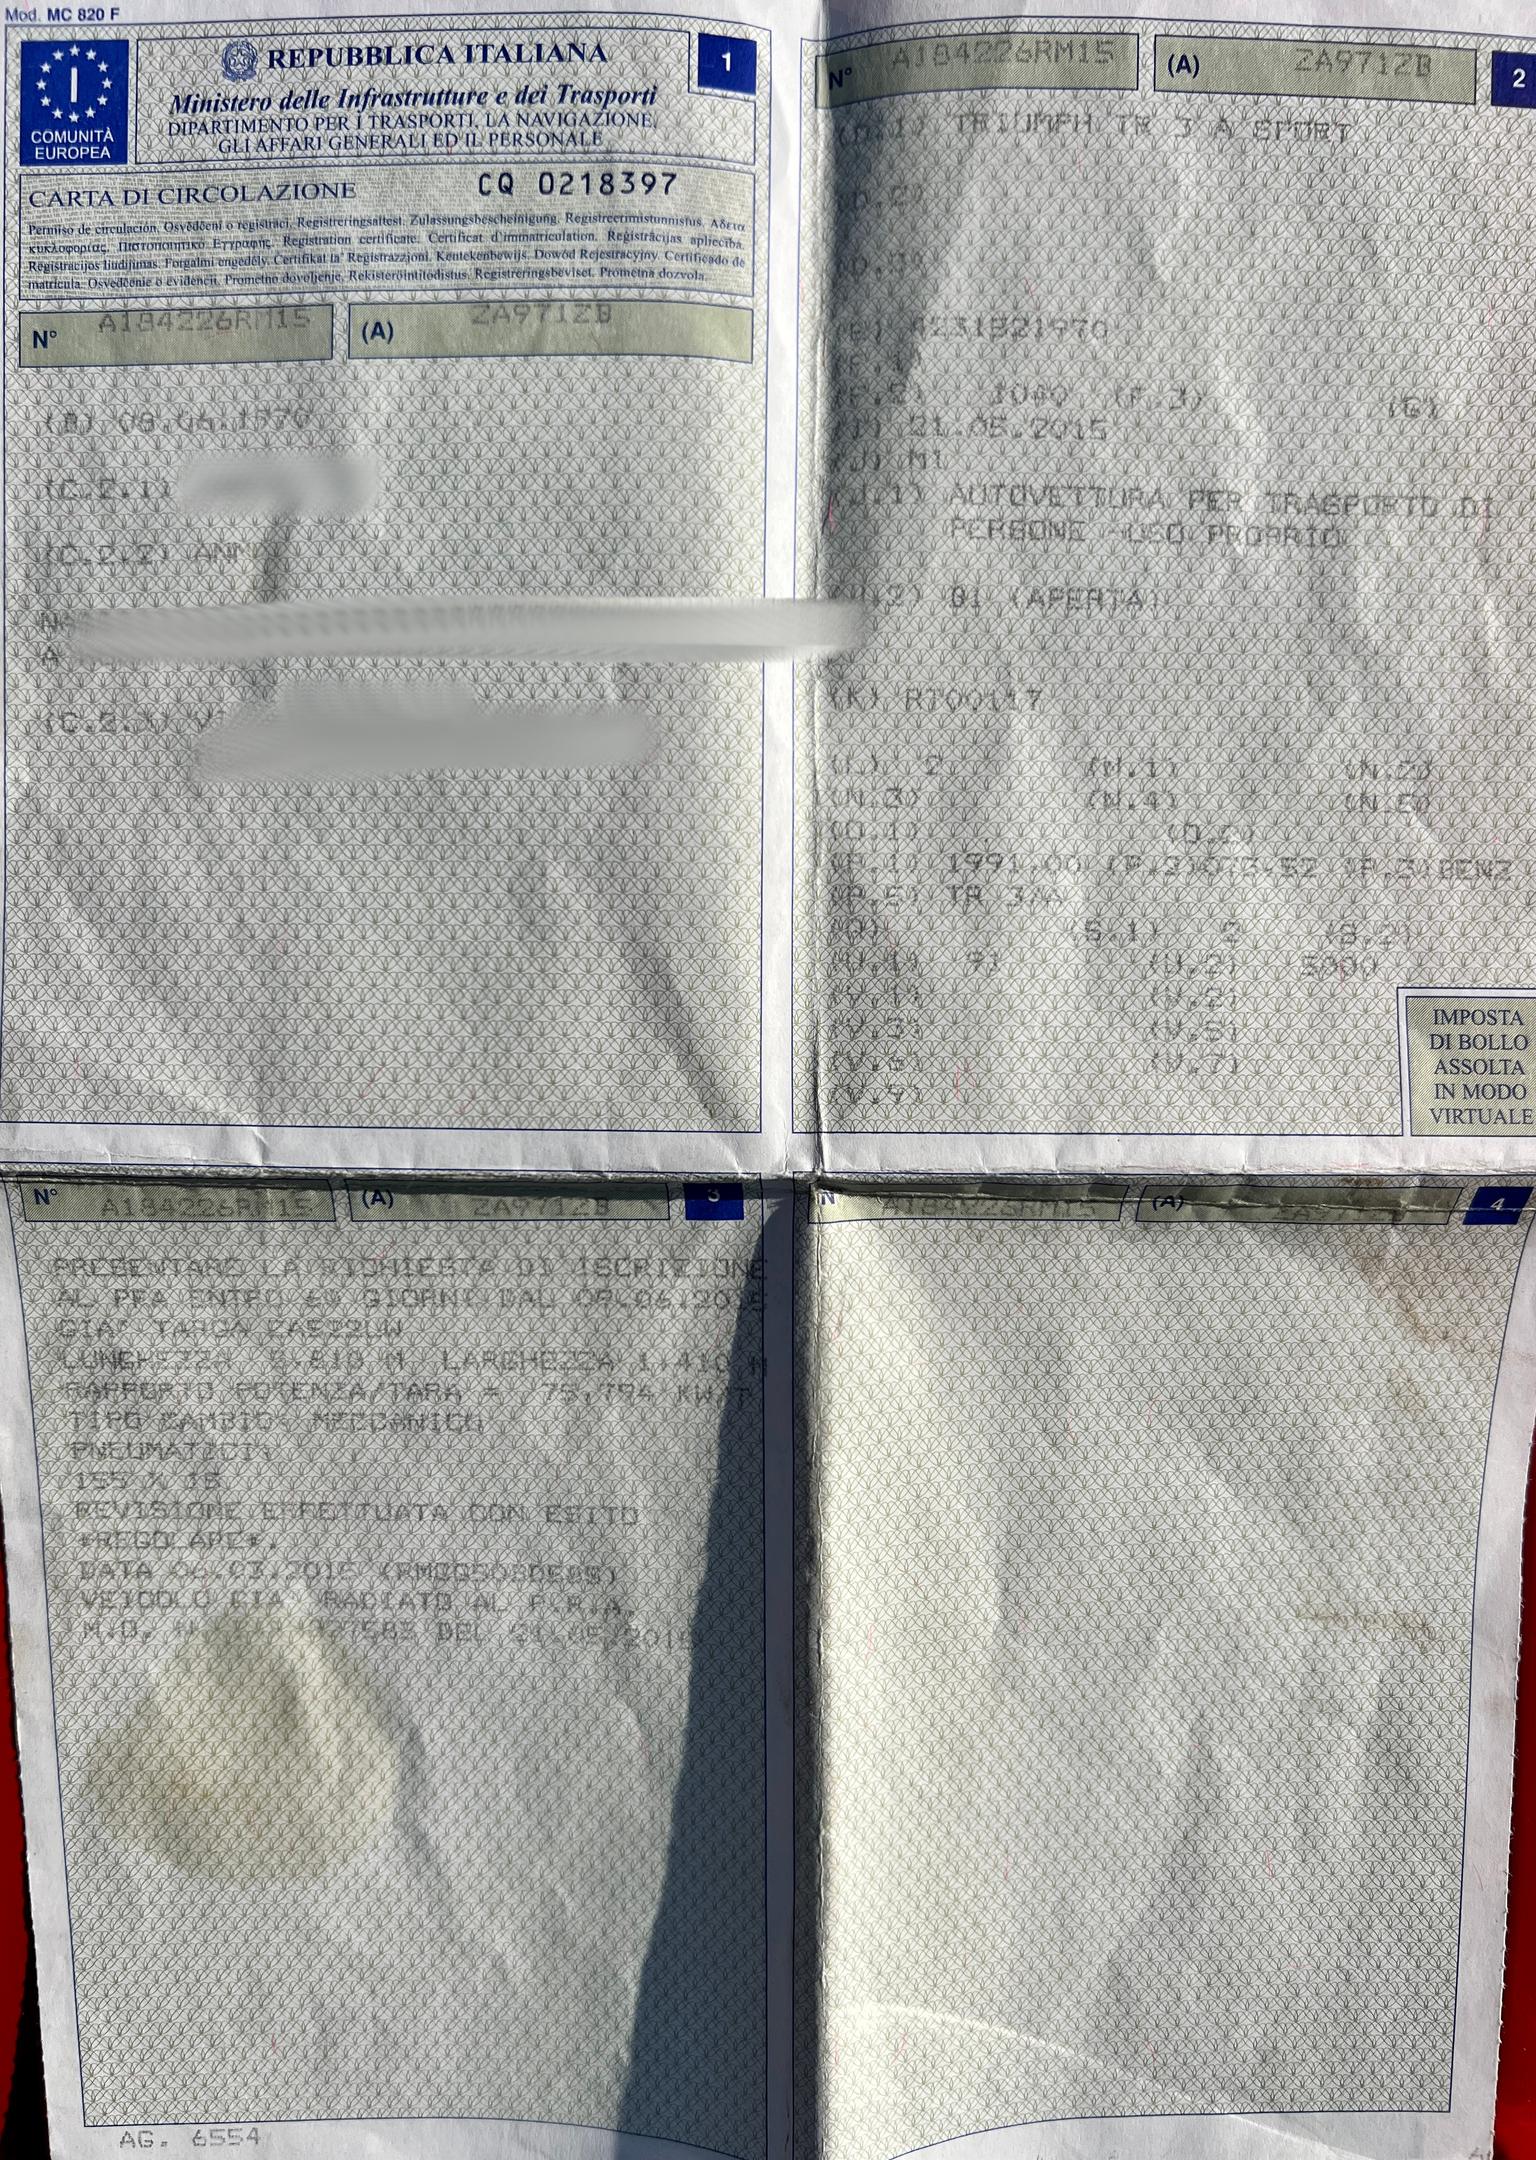 Mod. MC 820 F
I
COMUNITÀ
EUROPEA
REPUBBLICA ITALIANA
Ministero delle Infrastrutture e dei Trasporti
DIPARTIMENTO PER I TRASPORTI, LA NAVIGAZIONE,
GLI AFFARI GENERALI ED IL PERSONALE
1
CARTA DI CIRCOLAZIONE CQ 0218397
Permiso de circulación, Osvědčení o registraci, Registreringsattest, Zulassungsbescheinigung, Registreerimistunnistus, Αδεια
κυκλοφορίας, Πιστοποιητικό Εγγραφής, Registration certificate, Certificat d'immatriculation, Reģistrācijas apliecība,
Registracijos liudijimas, Forgalmi engedély, Ċertifikat ta' Reġistrazzjoni, Kentekenbewijs, Dowód Rejestracyjny, Certificado de
matrícula, Osvedčenie o evidencii, Prometno dovoljenje, Rekisteröintitodistus, Registreringsbeviset, Prometna dozvola.
N° A184226RM15 (A) ZA971ZB
(B) 08.06.1970
(C.2.1)
(C.2.2) ANN
A
(C.2.3) V
N° A184226RM15 (A) ZA971ZB 2
(D.1) TRIUMPH TR 3 A SPORT
(D.2)
(D.3)
(E)
(F.1)
(F.2) 1040 (F.3) (G)
(I) 21.05.2015
(J) M1
(J.1) AUTOVETTURA PER TRASPORTO DI
PERSONE -USO PROPRIO
(J.2) 01 (APERTA)
(K) RT00117
(L) 2 (N.1) (N.2)
(N.3) (N.4) (N.5)
(O.1) (O.2)
(P.1) 1991.00 (P.2)073.52 (P.3)BENZ
(P.5) TR 3/A
(Q) (S.1) 2 (S.2)
(U.1) 91 (U.2)
(V.1) (V.2)
(V.3) (V.5)
(V.6) (V.7)
(V.9)
IMPOSTA
DI BOLLO
ASSOLTA
IN MODO
VIRTUALE
N° A184226RM15 (A) ZA971ZB 3
PRESENTARE LA RICHIESTA DI ISCRIZIONE
AL PRA ENTRO 60 GIORNI DAL 09.06.2015
GIA' TARGA
LUNGHEZZA 3,810 M LARGHEZZA 1,410 M
RAPPORTO POTENZA/TARA = 75,794 KW/T
TIPO CAMBIO: MECCANICO
PNEUMATICI:
155 X 15
REVISIONE EFFETTUATA CON ESITO
*REGOLARE*.
DATA 06.03.2015
VEICOLO GIA' RADIATO AL P.R.A.
M.O. DEL 21.05.2015
AG. 6554
N A184226RM15 (A) ZA971ZB 4